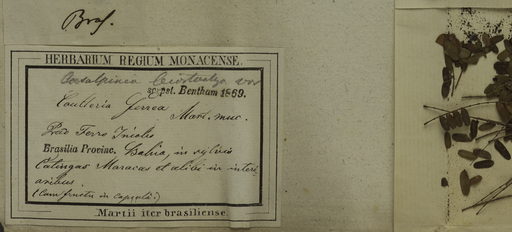 Bras.
HERBARIUM REGIUM MONACENSE.
Caesalpinea leiostachya
script. Bentham 1869.
Coulteria ferrea
Mart. msc.
Páo Ferro Incolis
Brasilia Provinc. Bahia, in sylvis
Catingas Maracas et alibi in interi
oribus
(cum fructu in capsula.)
Martii iter brasiliense.